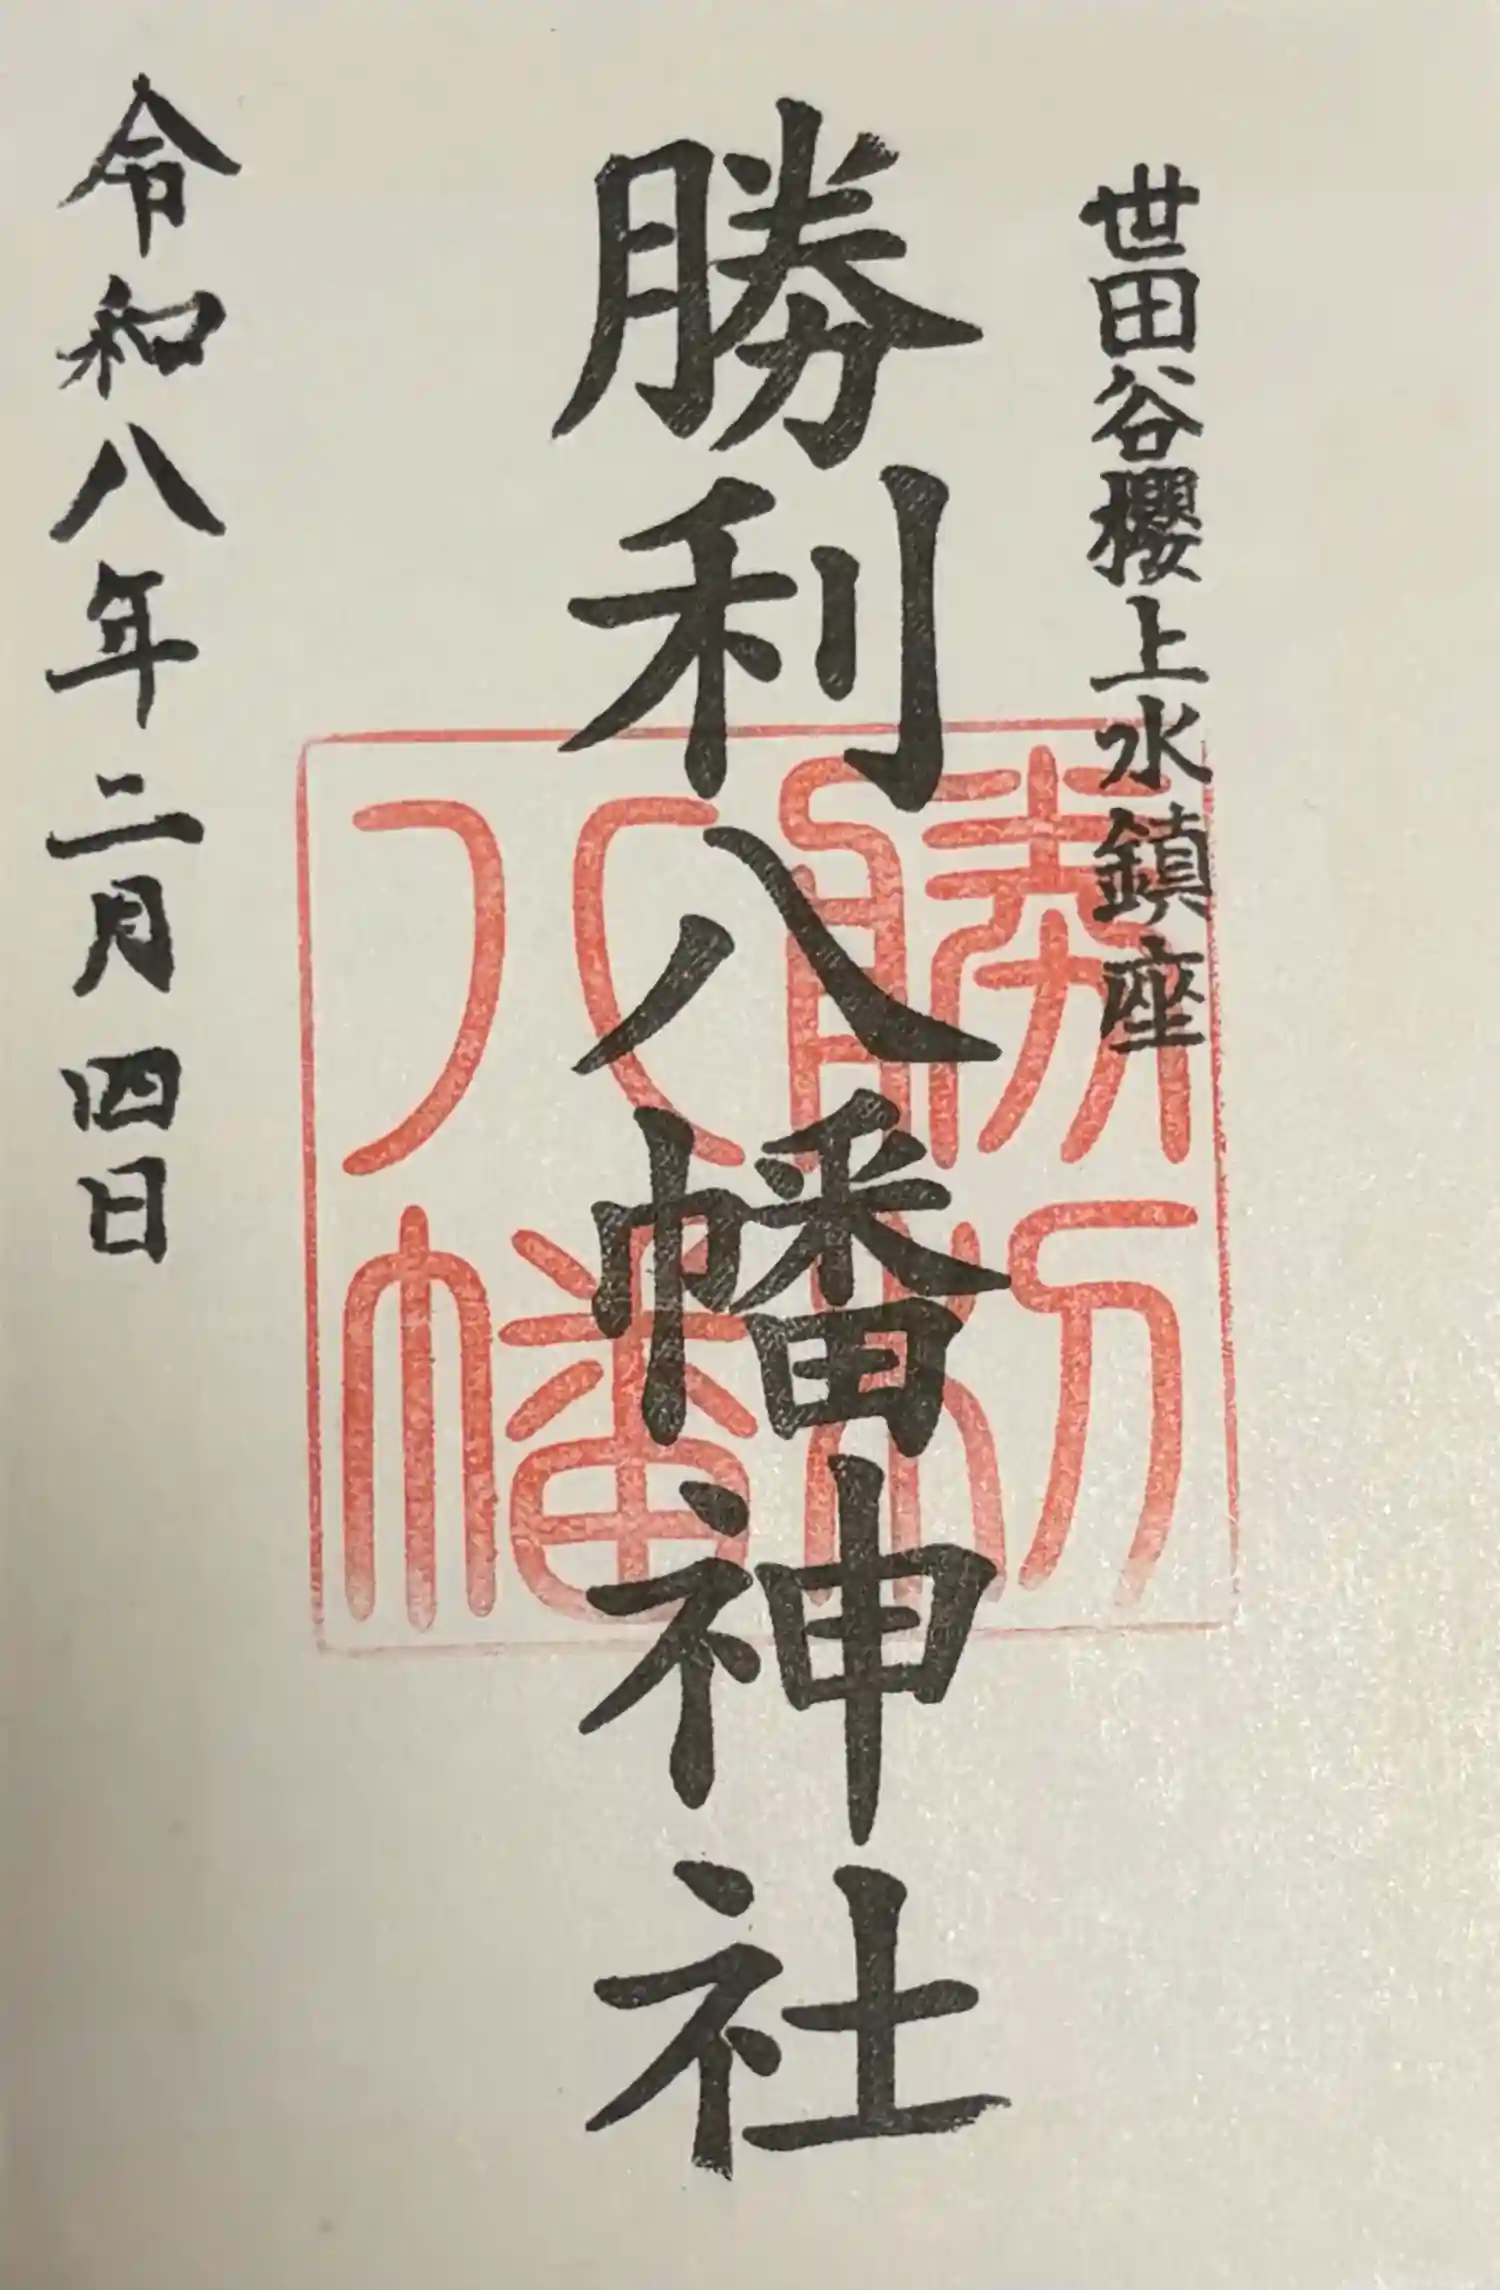 世田谷櫻上水鎮座
勝利八幡神社
勝利
八幡
令和八年二月四日